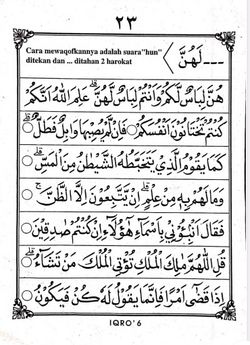 ٢٣
Cara mewaqofkannya adalah suara"hun"
ditekan dan ... ditahan 2 harokat
---لَهُنَّ
هُنَّ لِبَاسٌ لَكُمْ وَاَنْتُمْ لِبَاسٌ لَهُنَّ ۗ عَلِمَ اللّٰهُ اَنَّكُمْ
كُنْتُمْ تَخْتَانُوْنَ اَنْفُسَكُمْ ○ فَاِنْ لَمْ يُصِبْهَا وَابِلٌ فَطَلٌّ ○
كَمَا يَقُوْمُ الَّذِيْ يَتَخَبَّطُهُ الشَّيْطٰنُ مِنَ الْمَسِّ ○
وَمَا لَهُمْ بِهٖ مِنْ عِلْمٍ ۗ اِنْ يَتَّبِعُوْنَ اِلَّا الظَّنَّ ۚ ○
فَقَالَ اَنْۢبِـُٔوْنِيْ بِاَسْمَاۤءِ هٰٓؤُلَاۤءِ اِنْ كُنْتُمْ صٰدِقِيْنَ ○
قُلِ اللّٰهُمَّ مٰلِكَ الْمُلْكِ تُؤْتِى الْمُلْكَ مَنْ تَشَاۤءُ ○
اِذَا قَضٰٓى اَمْرًا فَاِنَّمَا يَقُوْلُ لَهٗ كُنْ فَيَكُوْنُ ○
IQRO' 6